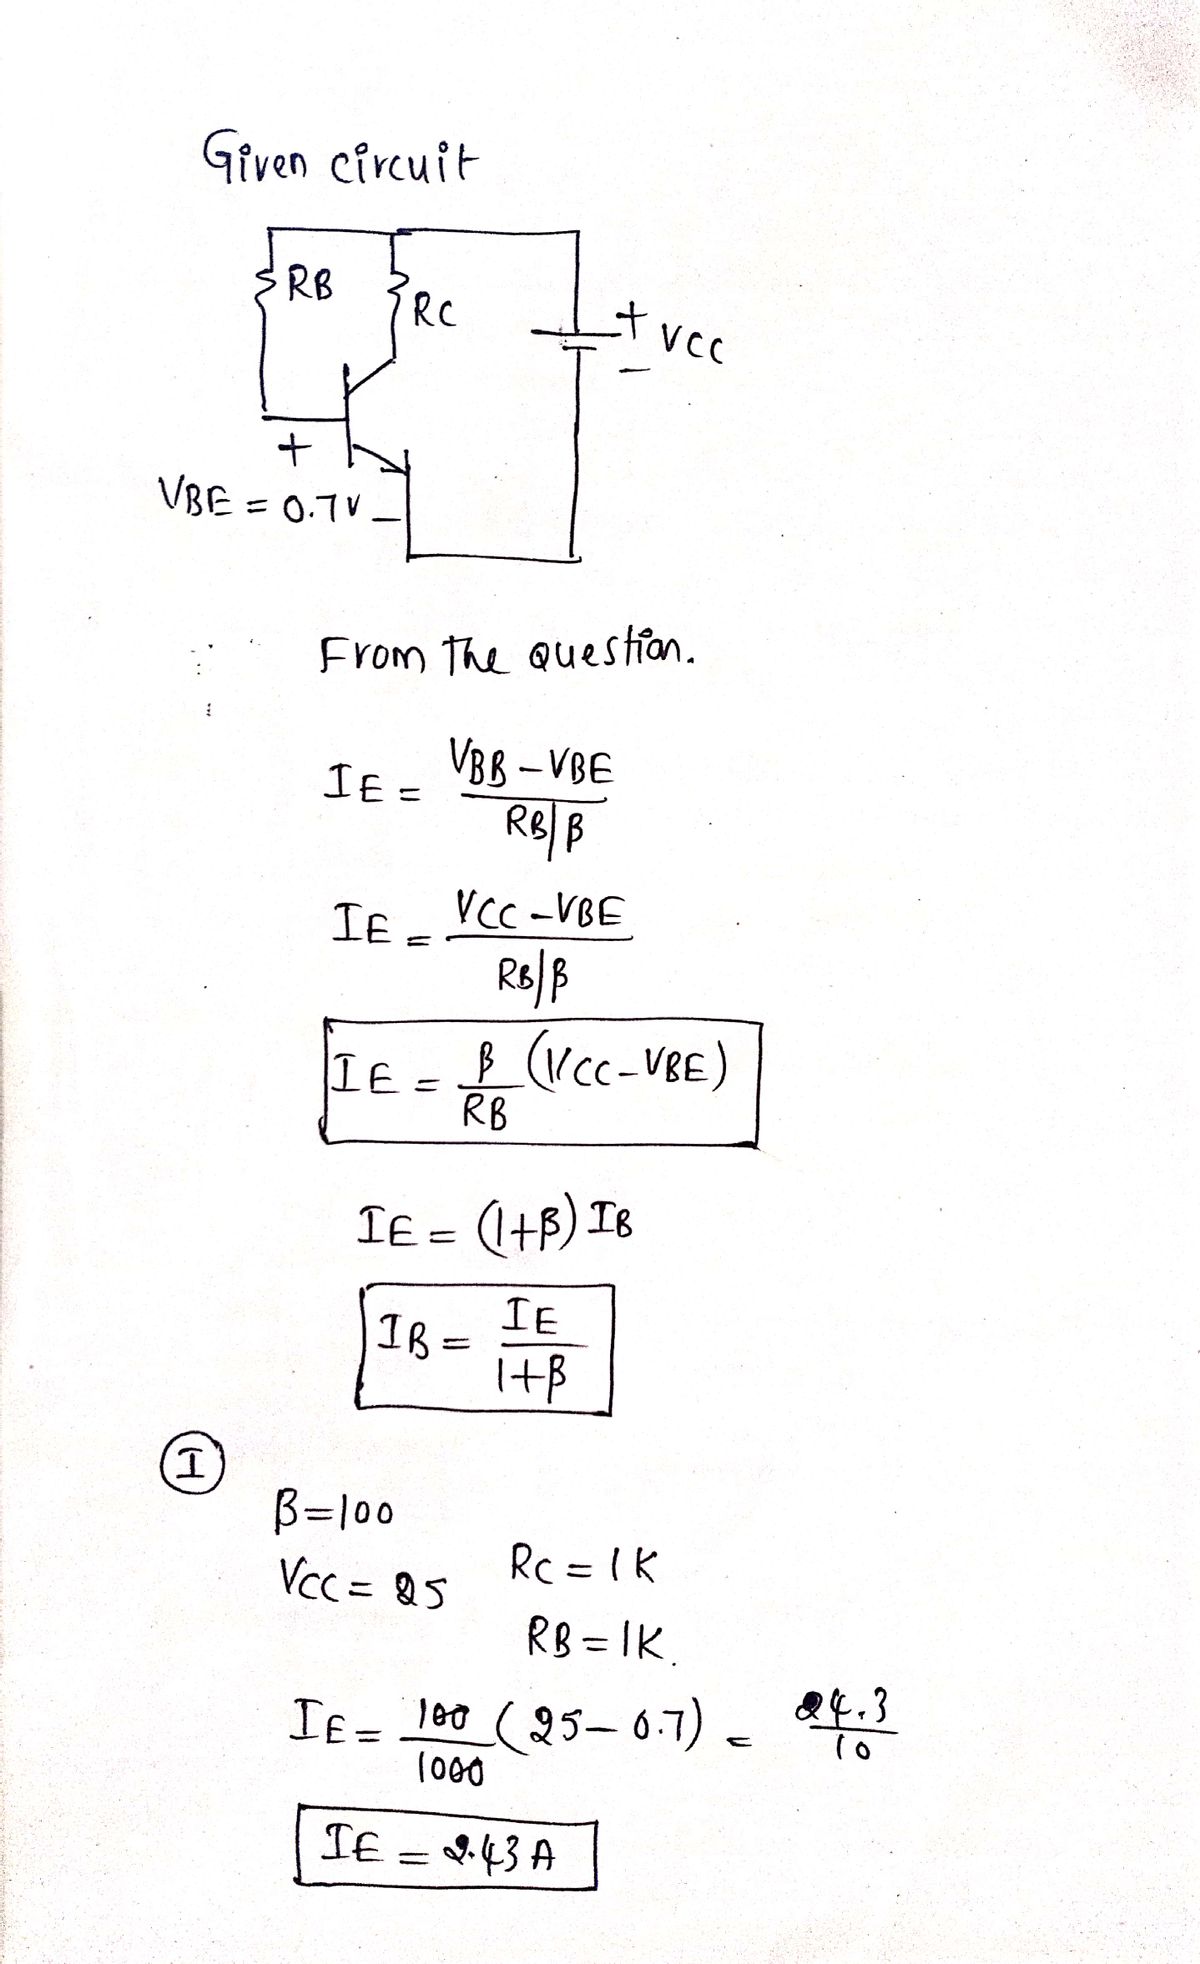 Given circuit
RB
RC
+
VCC
−
+
VBE = 0.7V −
From The question.
IE = VBB - VBE
RB/β
IE = VCC - VBE
RB/β
IE = β (VCC - VBE)
RB
IE = (1+β) IB
IB = IE
1+β
I
β=100
VCC = 25
RC = 1K
RB = 1K.
IE = 100 (25 - 0.7) = 24.3
1000 10
IE = 2.43 A